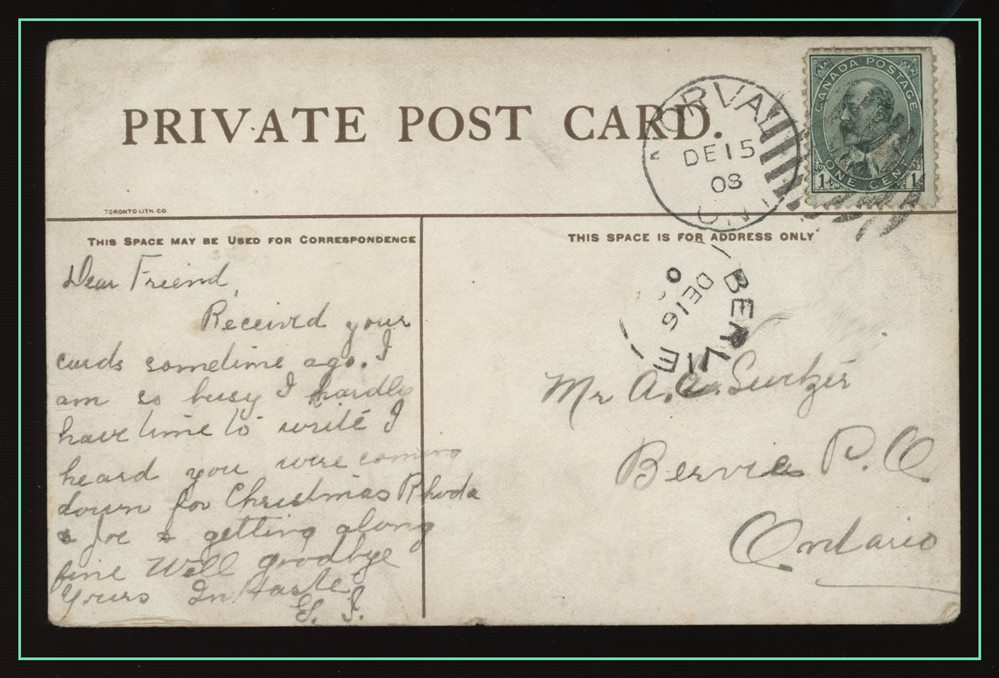 PRIVATE POST CARD.
CANADA POSTAGE
ONE CENT
1 1
ORVAL
DE 15
08
ONT
TORONTO LITH. CO.
THIS SPACE MAY BE USED FOR CORRESPONDENCE
THIS SPACE IS FOR ADDRESS ONLY
BERLIE
DE 16
0
Dear Friend,
Received your
cards sometime ago. I
am so busy I hardly
have time to write I
heard you were coming
down for Christmas Rhoda
& Joe getting along
fine Well goodbye
Yours In haste
Mr A.
Bervie P.O
Ontario